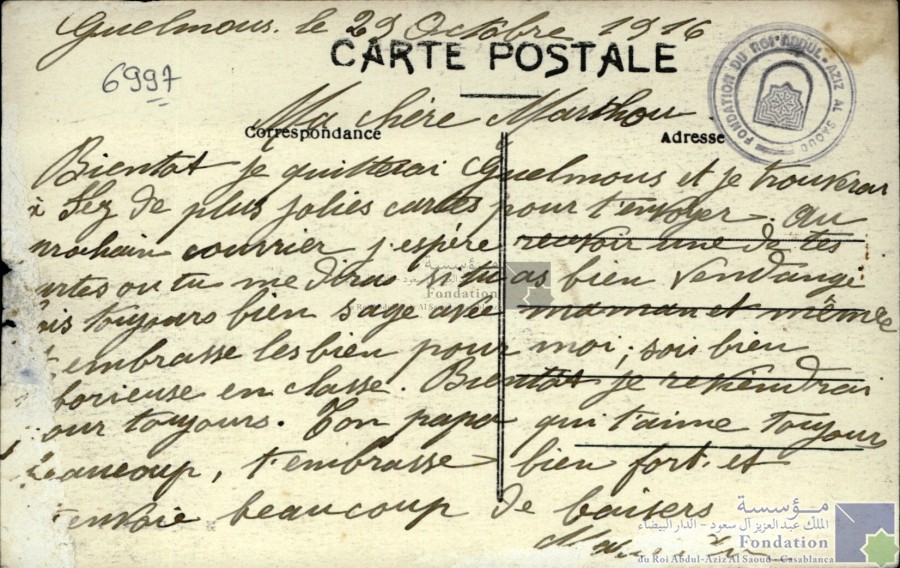 Guelmous. le 29 Octobre 1916
CARTE POSTALE
6997
FONDATION DU ROI ABDUL-AZIZ AL SAOUD
Ma chère Marthou
Correspondance
Adresse
Bientot je quitterai Guelmous et je trouverai
à Fez de plus jolies cartes pour t'envoyer. Au
prochain courrier j'espère recevoir une de tes
cartes ou tu me diras si tu as bien vendangé
toujours bien sage avec maman et mémée
embrasse les bien pour moi; sois bien
laborieuse en classe. Bientot je reviendrai
pour toujours. Ton papa qui t'aime toujours
beaucoup, t'embrasse bien fort. et
t'envoie beaucoup de baisers
مؤسسة
الملك عبد العزيز آل سعود - الدار البيضاء
Fondation
du Roi Abdul-Aziz Al Saoud - Casablanca